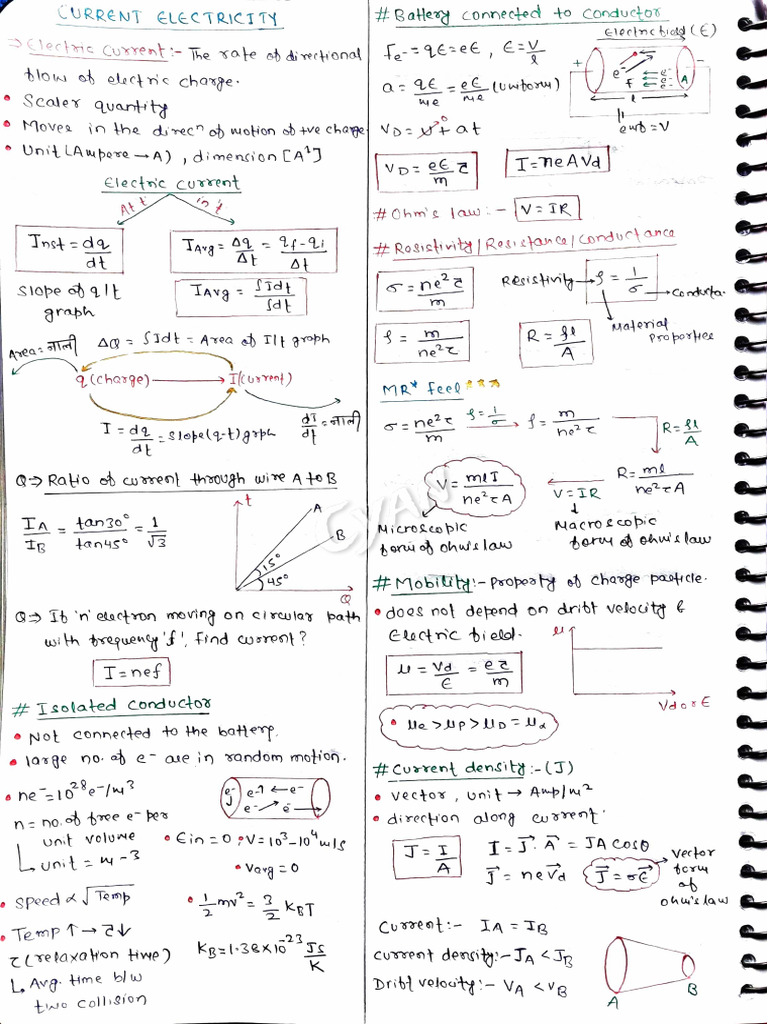 CURRENT ELECTRICITY
⇒ Electric Current :- The rate of directional
flow of electric charge.
• Scaler quantity
• Moves in the direcⁿ of motion of +ve charge
• Unit (Ampere → A), dimension [A¹]
Electric Current
At t
in 't'
Inst = dq/dt
IAvg = Δq/Δt = (qf - qi)/Δt
slope of q/t
graph
IAvg = ∫Idt/∫dt
ΔQ = ∫Idt = Area of I/t graph
Area = नाली
q (charge) → I (current)
I = dq/dt = slope (q-t) grph
dI/dt = नाली
Q⇒ Ratio of current through wire A to B
IA/IB = tan30°/tan45° = 1/√3
t
A
B
15°
45°
Q
Q⇒ If 'n' electron moving on circular path
with frequency 'f', find current?
I = nef
# Isolated conductor
• Not connected to the battery.
• large no. of e⁻ are in random motion.
• ne⁻ = 10²⁸ e⁻/m³
e⁻ e⁻↑ ←e⁻
e⁻→ e⁻→
n = no. of free e⁻ per
unit volume
unit = m-3
• Ein = 0 • V = 10³ - 10⁴ m/s
• Vavg = 0
• Speed ∝ √Temp
• 1/2 mv² = 3/2 KBT
• Temp ↑ → τ↓
τ (relaxation time)
KB = 1.38×10⁻²³ Js/K
Avg. time b/w
two collision
# Battery connected to conductor
fe⁻ = qE = eE, E = V/l
Electric field (E)
+
-
e⁻
f
e⁻
e⁻
e⁻
A
l
emf = V
a = qE/me = eE/me (Uniform)
VD = u⁰ + at
VD = eE/m τ
I = neAVd
# Ohm's law :- V = IR
# Resistivity / Resistance / conductance
σ = ne²τ/m
Resistivity → ρ = 1/σ → Conducta.
Material
Properties
ρ = m/ne²τ
R = ρl/A
MR* feel ***
σ = ne²τ/m
ρ = 1/σ
ρ = m/ne²τ
R = ρl/A
V = mlI/ne²τA
V = IR
R = ml/ne²τA
Microscopic
form of ohm's law
Macroscopic
form of ohm's law
Cyan
# Mobility :- property of charge particle.
• does not depend on drift velocity &
Electric field.
μ = Vd/E = eτ/m
μ
Vd or E
• μe > μP > μD = μα
# Current density :- (J)
• vector, unit → Amp/m²
• direction along current
J = I/A
I = J⃗·A⃗ = JA cosθ
J⃗ = neV⃗d
J⃗ = σE⃗
vector
form
of
ohm's law
Current :- IA = IB
Current density :- JA < JB
Drift velocity :- VA < VB
A
B